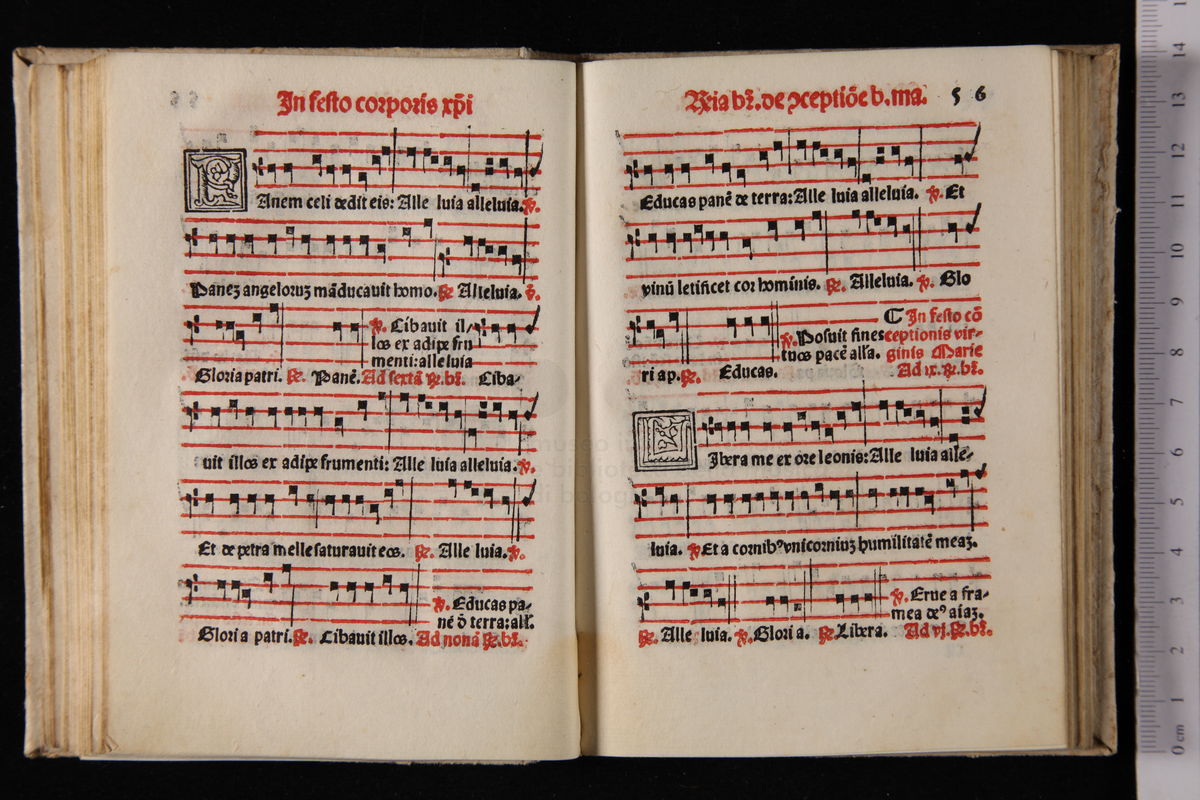 In festo corporis xp̄i
PAnem celi dedit eis: Alle luia alleluia. ℣.
Paneʒ angeloruʒ māducauit homo. ℟. Alleluia. ℣.
℣. Cibauit il⸗
los ex adipe fru
menti: alleluia
Gloria patri. ℟. Panē. Ad sextā ℟. br̄. Ciba⸗
uit illos ex adipe frumenti: Alle luia alleluia. ℣.
Et de petra melle saturauit eos. ℟. Alle luia. ℣.
℣. Educas pa⸗
nē d̄ terra: all'.
Gloria patri. ℟. Cibauit illos. Ad nonā ℟. br̄.
br̄. de ↄceptiōe b. ma. 56
Educas panē de terra: Alle luia alleluia. ℣. Et
vinū letificet cor hominis. ℟. Alleluia. ℣. Glo
℣. Posuit fines
tuos pacē all'a.
ri a p. ℟. Educas.
⸿ In festo cō
ceptionis vir⸗
ginis Marie
Ad ix. ℟. br̄.
LIbera me ex ore leonis: Alle luia alle⸗
luia. ℣. Et a cornibꝰ vnicorniuʒ humilitatē meaʒ.
℣. Erue a fra⸗
mea deꝰ aīaʒ.
℟. Alle luia. ℣. Glori a. ℟. Libera. Ad vj. ℟. br̄.
0 cm
1
2
3
4
5
6
7
8
9
10
11
12
13
14